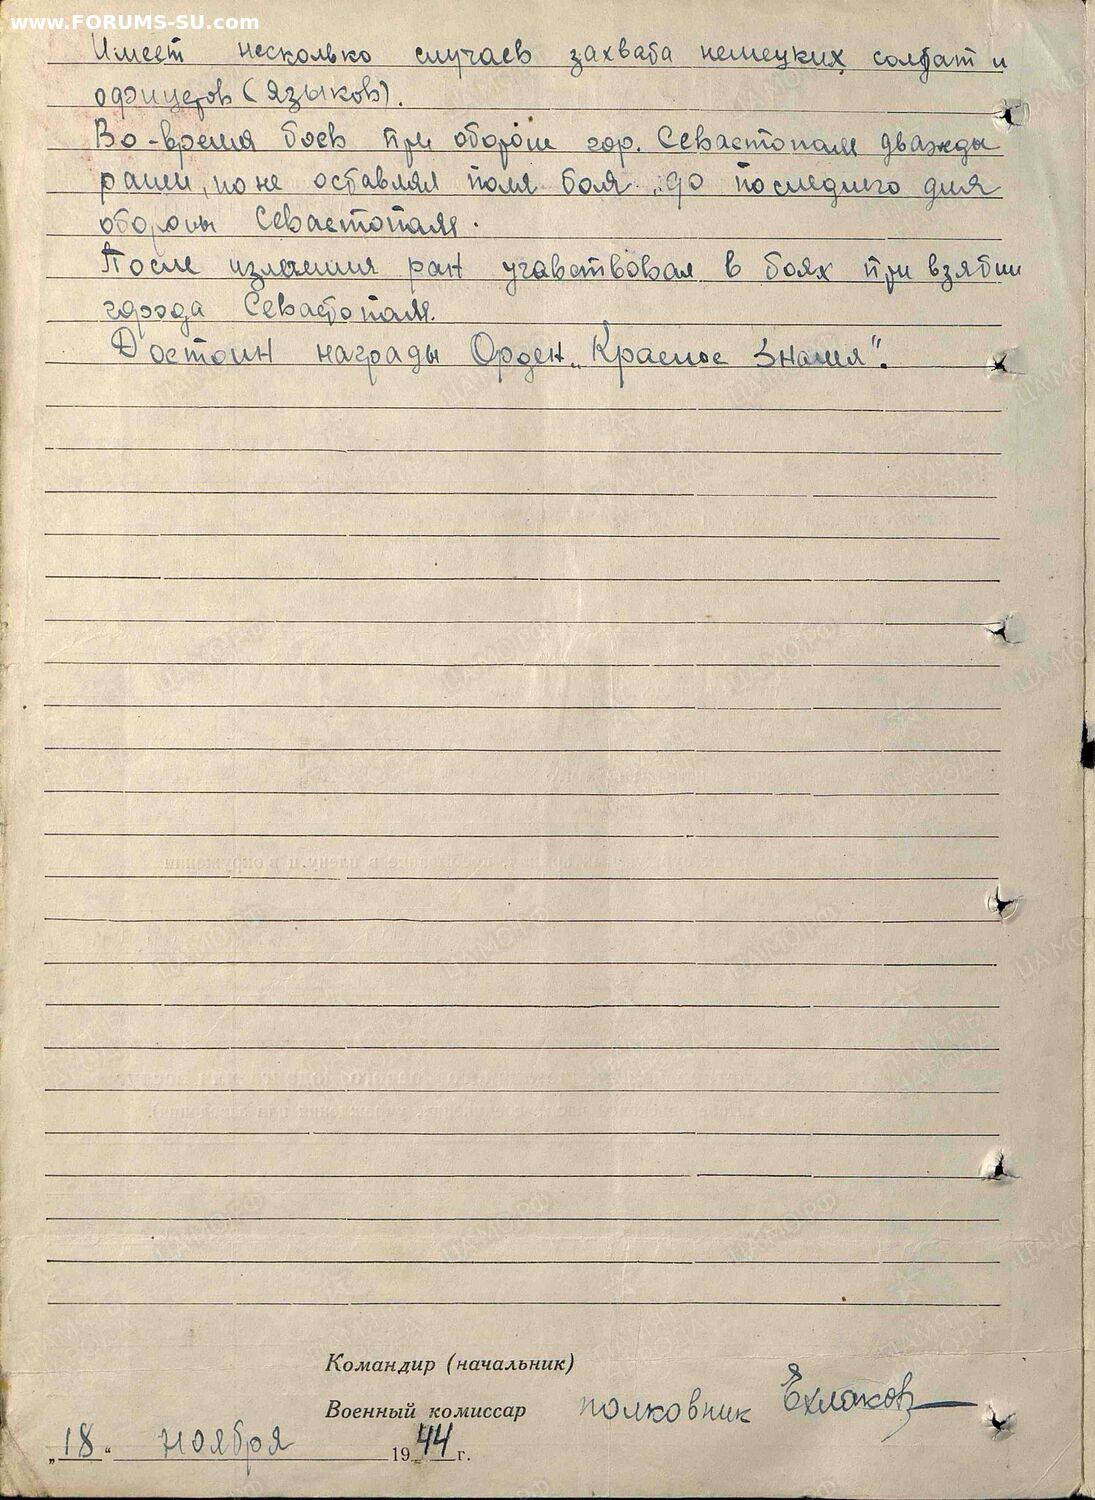 www.FORUMS-SU.com
Имеет несколько случаев захвата немецких солдат и
офицеров (языков).
Во-время боев при обороне гор. Севастополя дважды
ранен, но не оставлял поля боя до последнего дня
обороны Севастополя.
После излечения ран учавствовал в боях при взятии
города Севастополя.
Достоин награды Орден „Красное Знамя".
Командир (начальник)
Военный комиссар полковник Ехлаков
„18" ноября 1944 г.